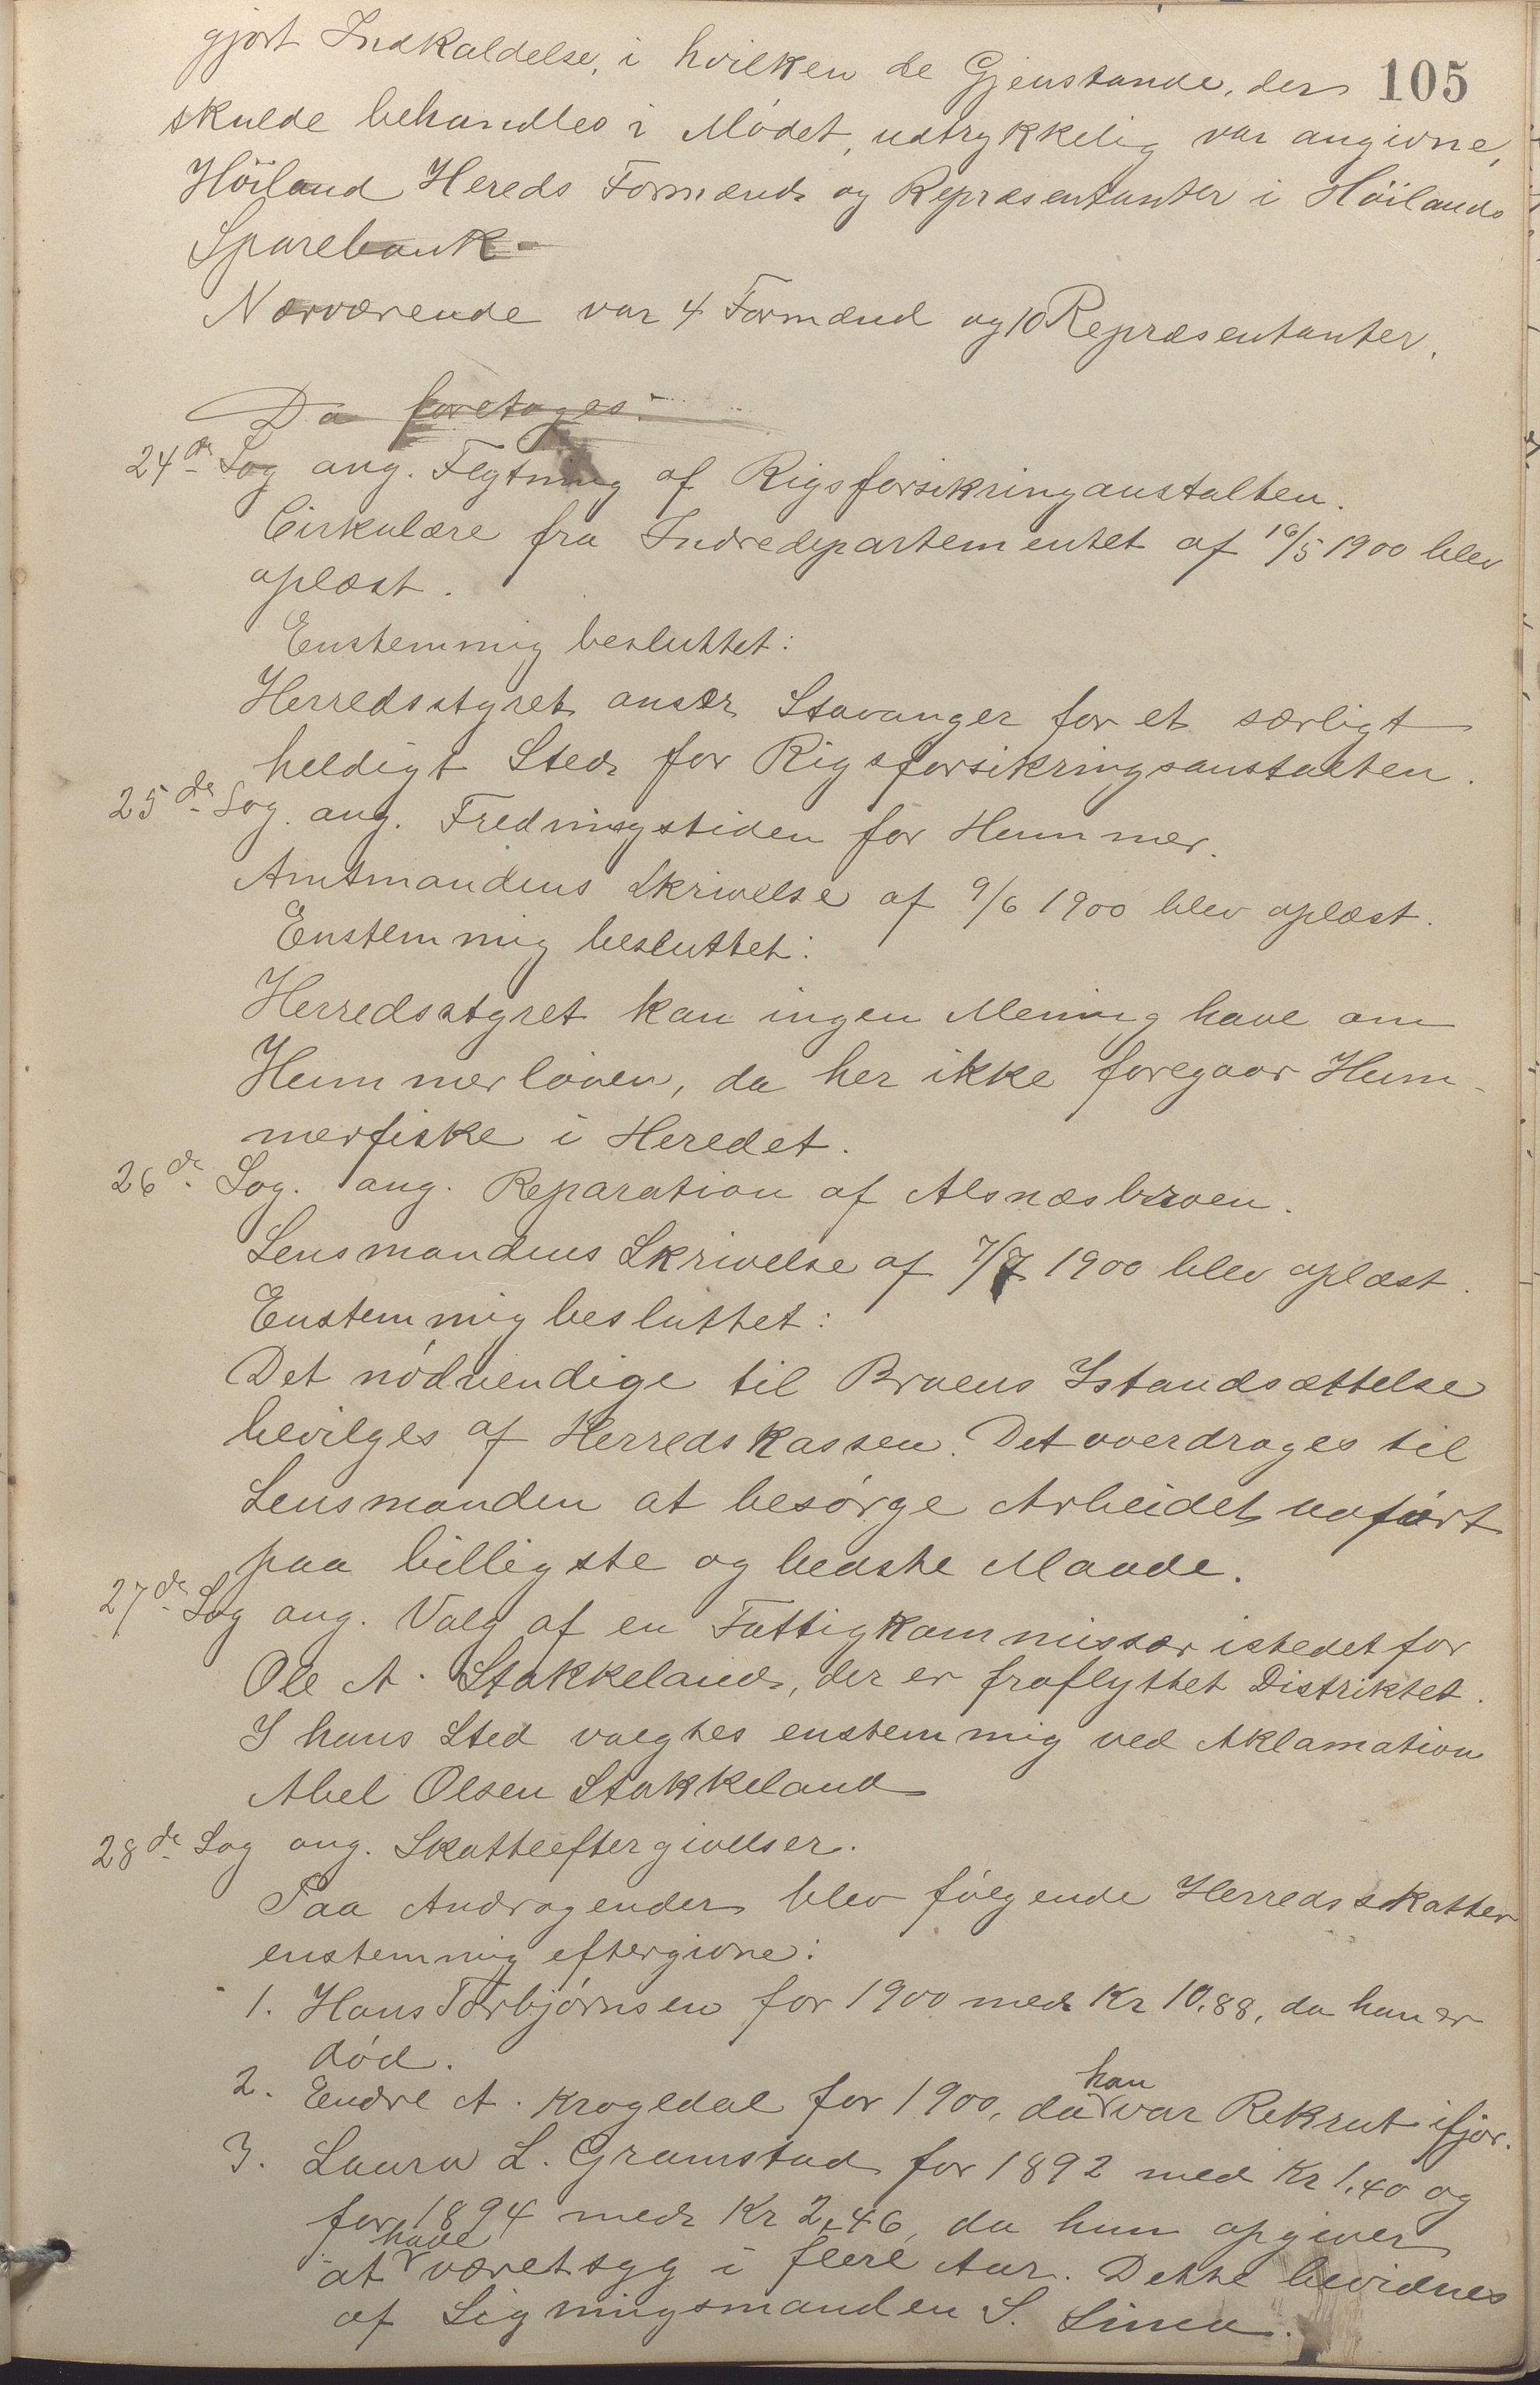 105
gjort Indkaldelse, i hvilken de Gjenstande, der
skulde behandles i Mødet, udtrykkelig var angivne,
Höiland Hereds Formænd og Repræsentanter i Höilands
Sparebank.
Nærværende var 4 Formænd og 10 Repræsentanter.
Da foretoges:
24de Sag ang. Flytning af Rigsforsikringanstalten.
Cirkulære fra Indredepartementet af 16/5 1900 blev
oplæst.
Enstemmig besluttet:
Herredsstyret anser Stavanger for et særligt
heldigt Sted for Rigsforsikringsanstalten.
25de Sag. ang. Fredningstiden for Hummer.
Amtmandens Skrivelse af 9/6 1900 blev oplæst.
Enstemmig besluttet:
Herredsstyret kan ingen Mening have om
Hummerloven, da her ikke foregaar Hum-
merfiske i Heredet.
26de Sag. ang. Reparation af Alsnæsbroen.
Lensmandens Skrivelse af 7/7 1900 blev oplæst.
Enstemmig besluttet:
Det nødvendige til Broens Istandsættelse
bevilges af Herredskassen. Det overdrages til
Lensmanden at besørge Arbeidet udført
paa billigste og bedste Maade.
27de Sag ang. Valg af en Fattigkommissær istedetfor
Ole A. Stokkeland, der er fraflyttet Distriktet.
I hans Sted valgtes enstemmig ved Aklamation
Abel Olsen Stokkeland
28de Sag ang. Skatteeftergivelser.
Paa Andragender blev følgende Herredsskatter
enstemmig eftergivne:
1. Hans Torbjørnsen for 1900 med Kr 10,88, da han er
død.
2. Endre A. Krogedal for 1900, da han var Rekrut ifjor.
3. Laura L. Gramstad for 1892 med Kr 1,40 og
for 1894 med Kr 2,46, da hun opgiver
at have været syg i flere Aar. Dette bevidnes
af Ligningsmanden S. Lima.